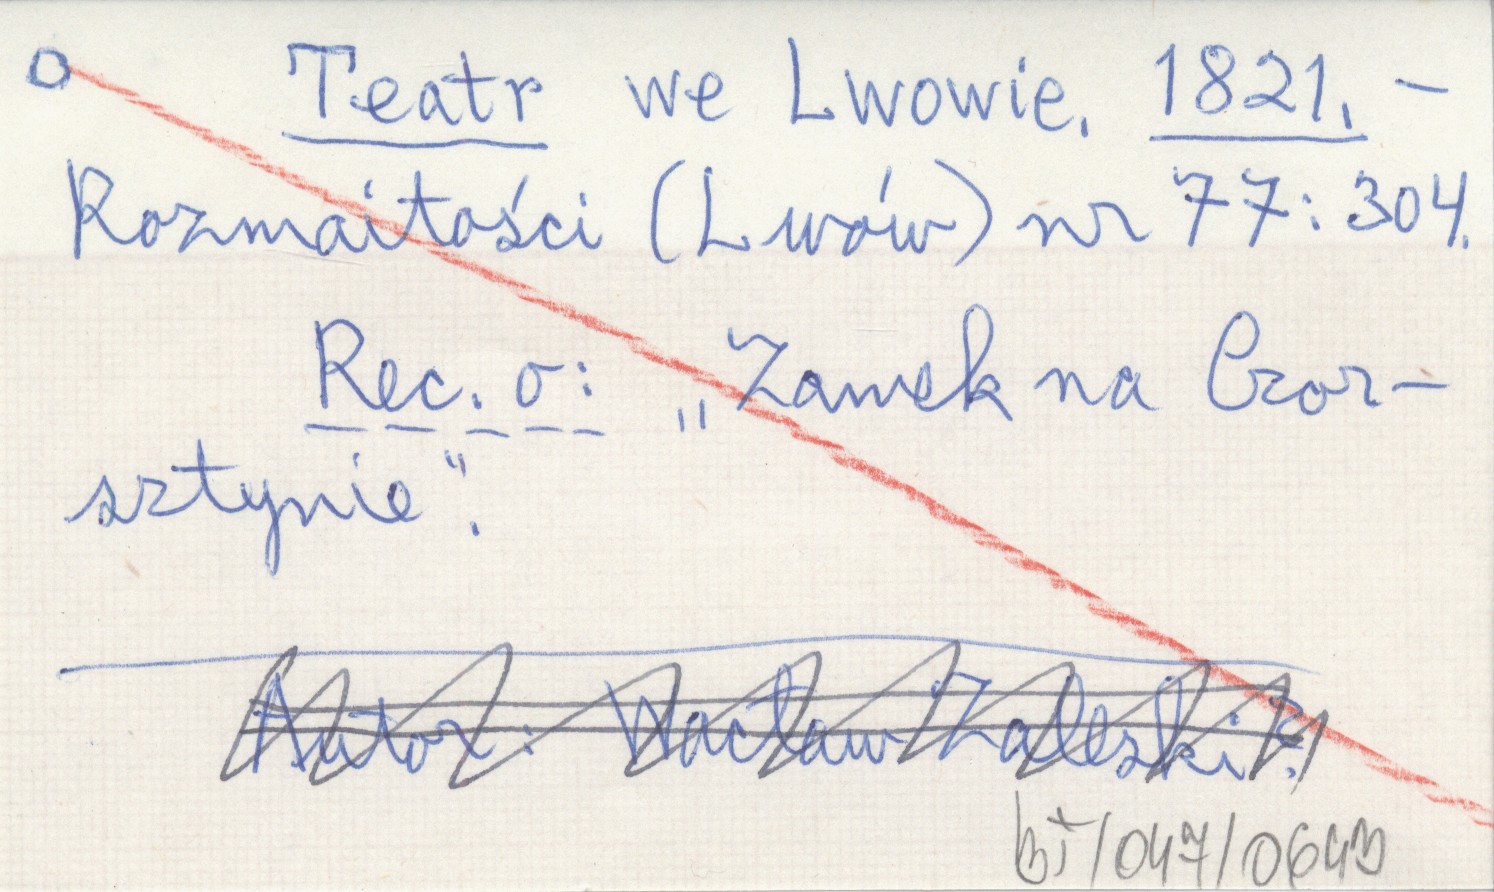 Teatr we Lwowie, 1821. -
Rozmaitości (Lwów) nr 77: 304.
Rec. o: „Zamek na Czor-
sztynie".
Autor: Wacław Zaleski?
bł/047/0643